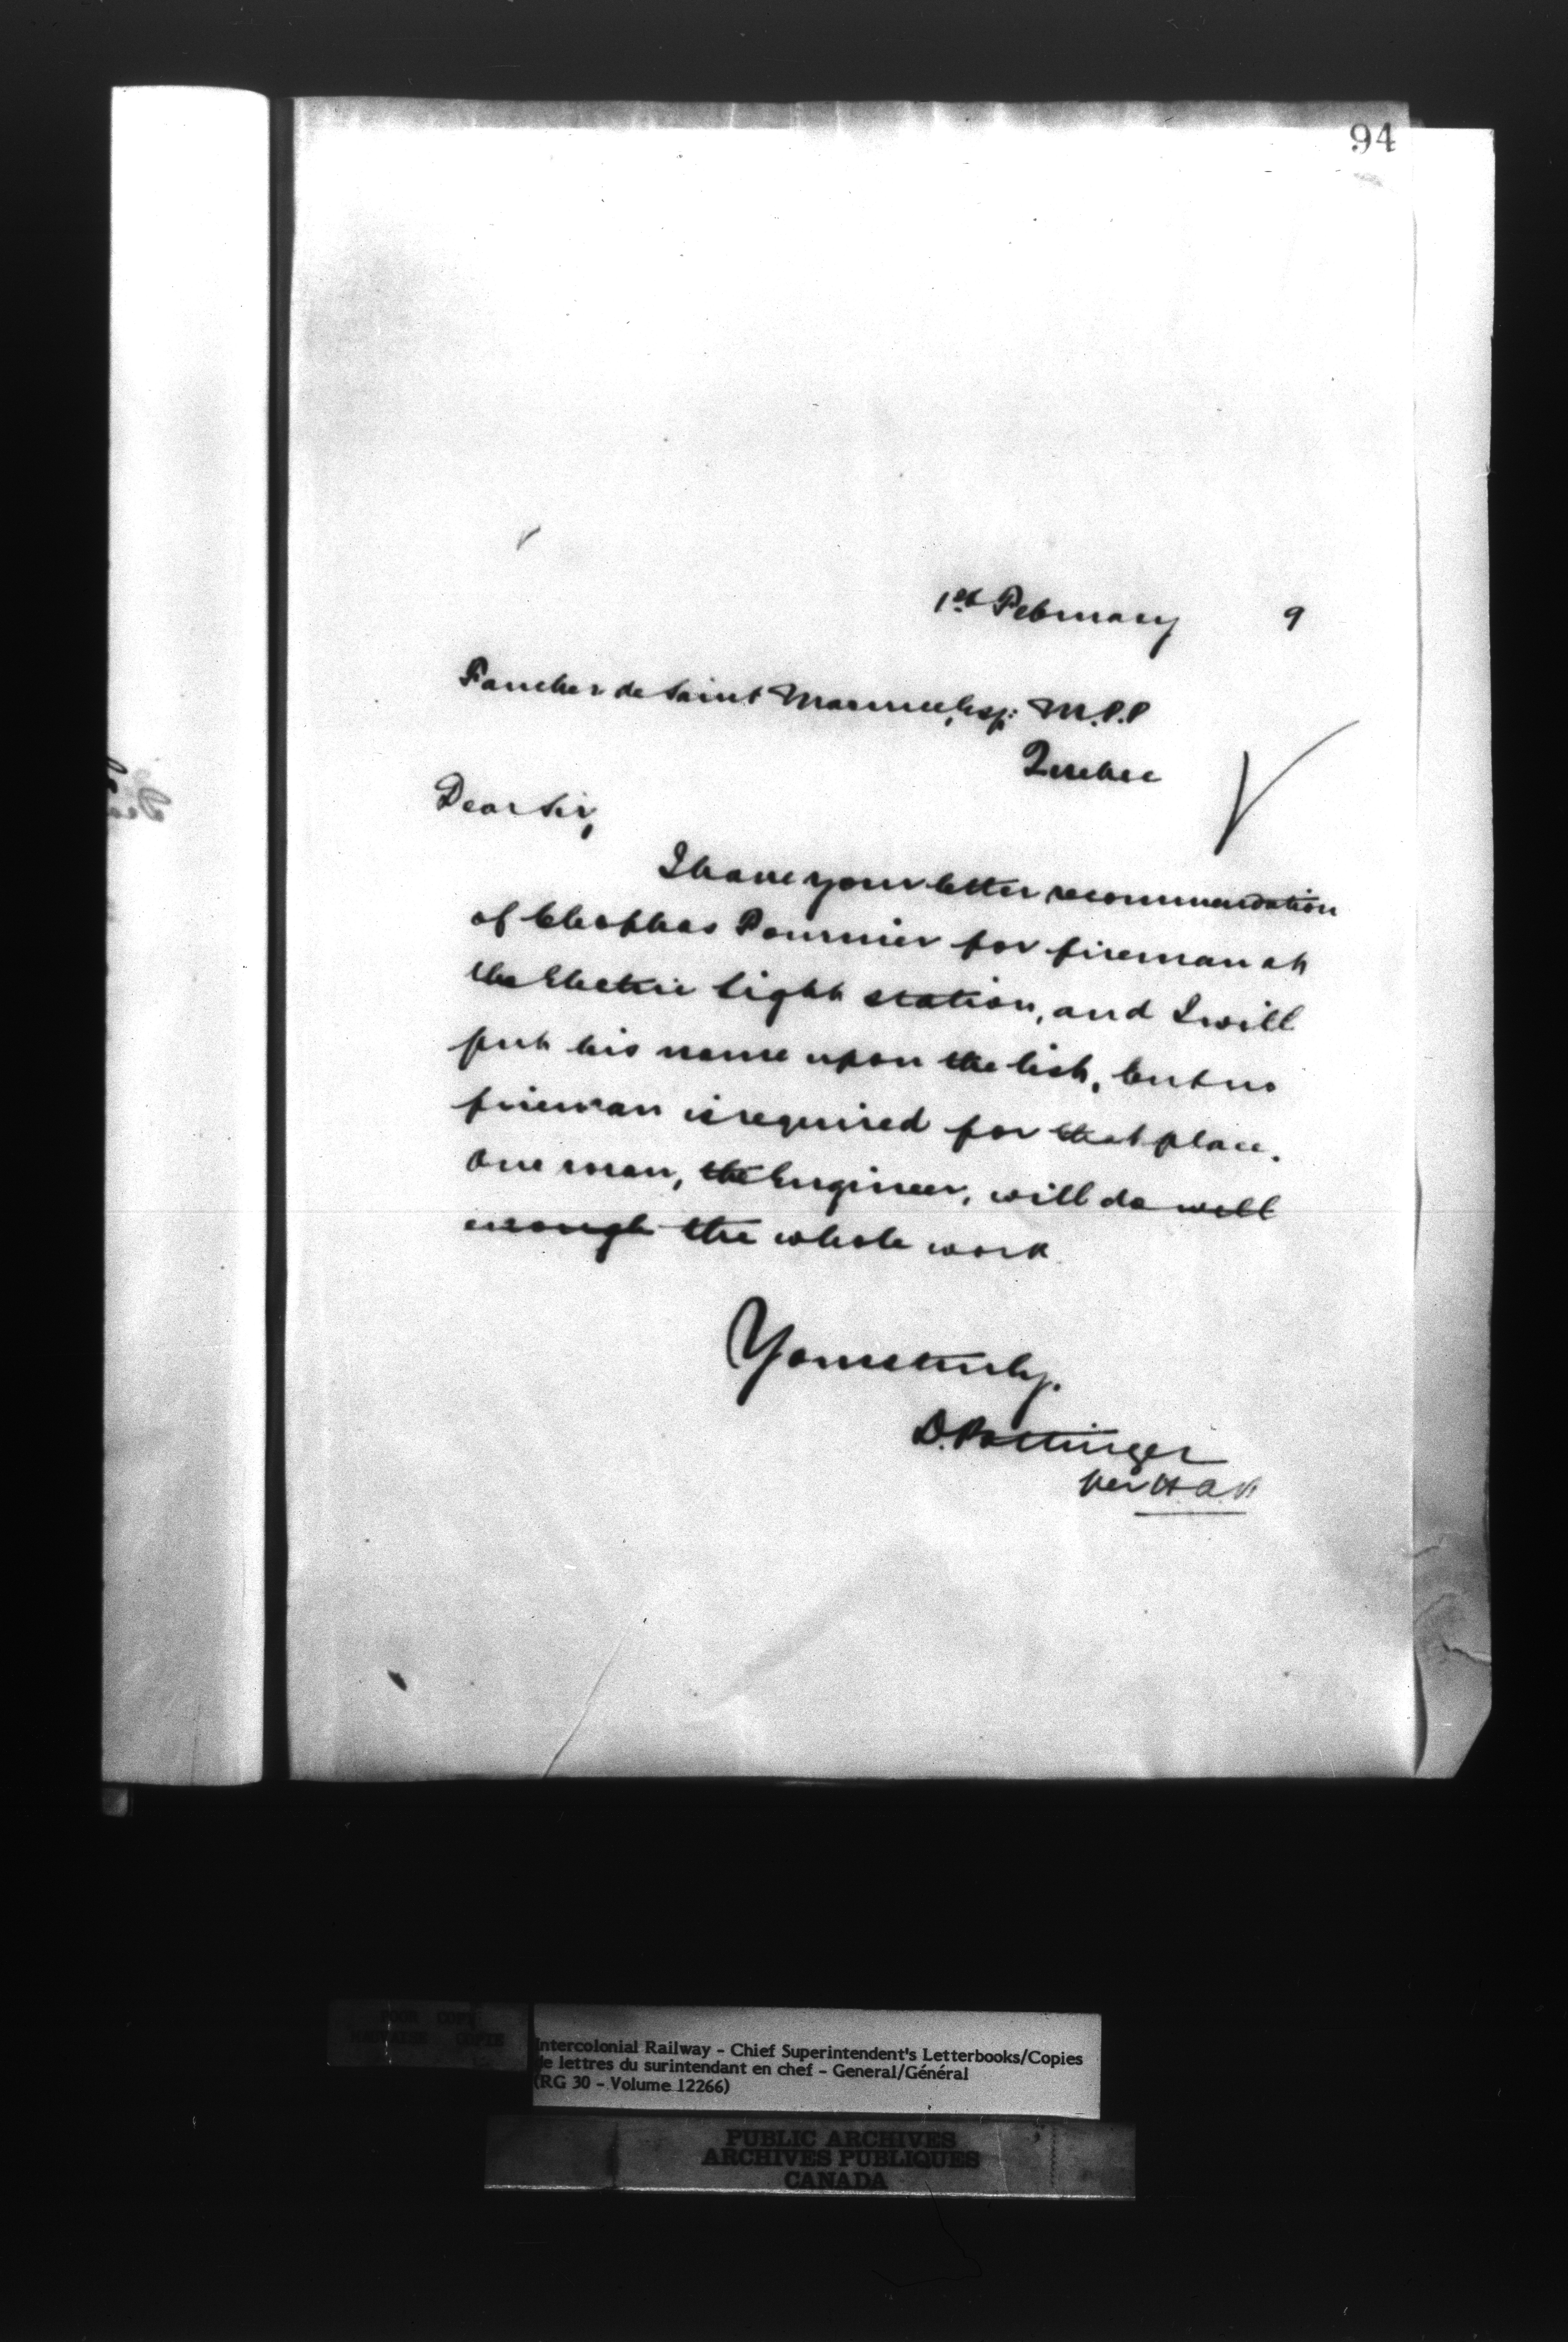 94
1st February 9
Faucher de Saint Maurice, Esq: M.P.P
Quebec
Dear Sir,
I have your letter recommendation
of Cleophas Fournier for fireman at
the Electric light station, and I will
put his name upon the list, but no
fireman is required for that place.
One man, the Engineer, will do well
enough the whole work
Yours truly.
D. Pottinger
per
Intercolonial Railway - Chief Superintendent's Letterbooks/Copies
de lettres du surintendant en chef - General/Général
(RG 30 - Volume 12266)
PUBLIC ARCHIVES
ARCHIVES PUBLIQUES
CANADA